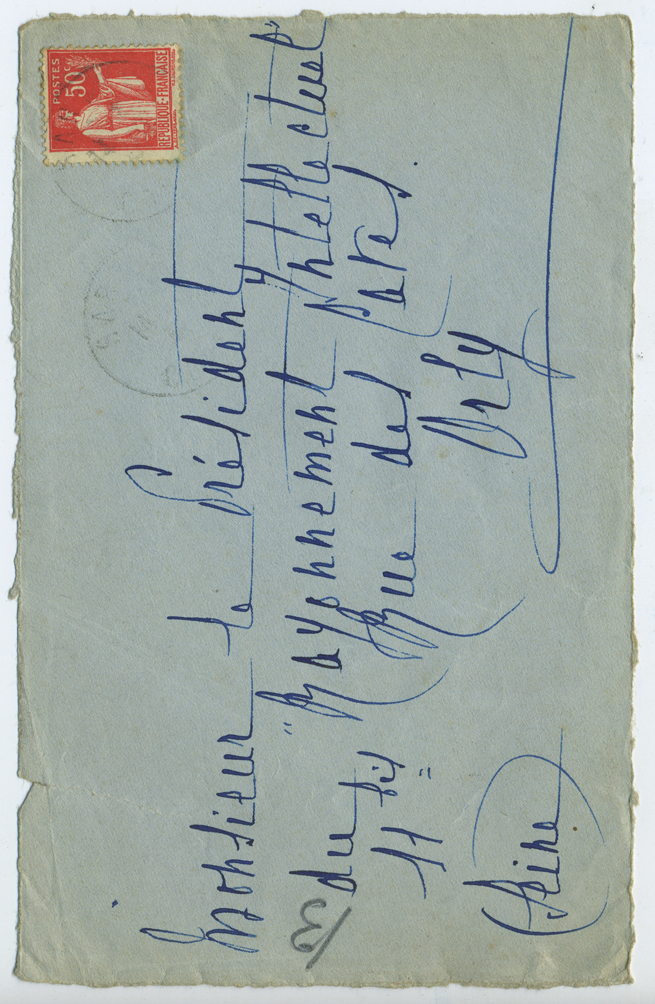 POSTES
50c
REPUBLIQUE FRANÇAISE
Monsieur le Président
du "Rayonnement Intellectuel"
11 bis Rue des
Orly
(Seine)